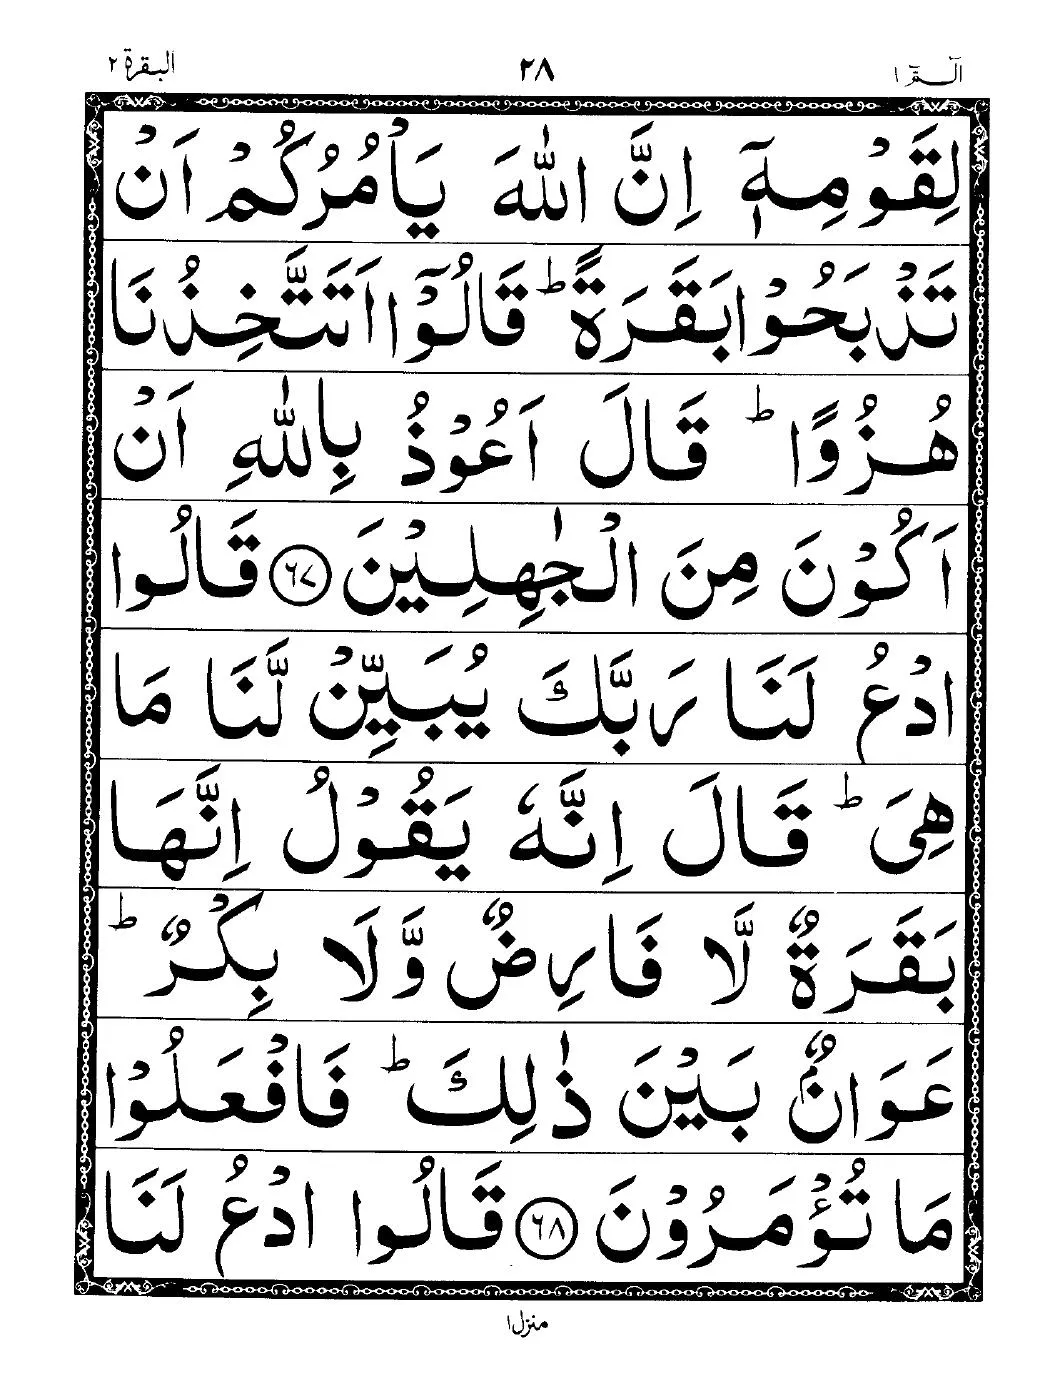 الٓـمّٓ ١ ٢٨ البقرة ٢
لِقَوْمِهٖۤ اِنَّ اللّٰهَ يَاْمُرُكُمْ اَنْ
تَذْبَحُوْا بَقَرَةً ؕ قَالُوْۤا اَتَتَّخِذُنَا
هُزُوًا ؕ قَالَ اَعُوْذُ بِاللّٰهِ اَنْ
اَكُوْنَ مِنَ الْجٰهِلِيْنَ ۝٦٧ قَالُوا
ادْعُ لَنَا رَبَّكَ يُبَيِّنْ لَّنَا مَا
هِيَ ؕ قَالَ اِنَّهٗ يَقُوْلُ اِنَّهَا
بَقَرَةٌ لَّا فَارِضٌ وَّلَا بِكْرٌ ؕ
عَوَانٌۢ بَيْنَ ذٰلِكَ ؕ فَافْعَلُوْا
مَا تُؤْمَرُوْنَ ۝٦٨ قَالُوا ادْعُ لَنَا
منزل ١